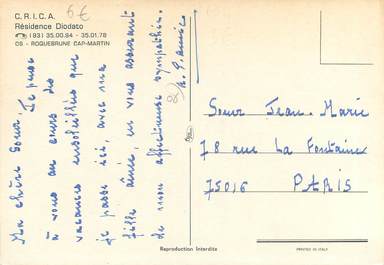 C.R.I.C.A.
Résidence Diodato
(93) 35.00.94 - 35.01.78
06 - ROQUEBRUNE CAP-MARTIN
6€
Ma chère Soeur, Je pense
à vous au cours des
vacances ensoleillées que
je passe ici, avec ma
fille aînée, en vous assurant
de mon affectueuse sympathie.
Soeur Jean-Marie
78 rue La Fontaine
75016 PARIS
Reproduction Interdite
PRINTED IN ITALY